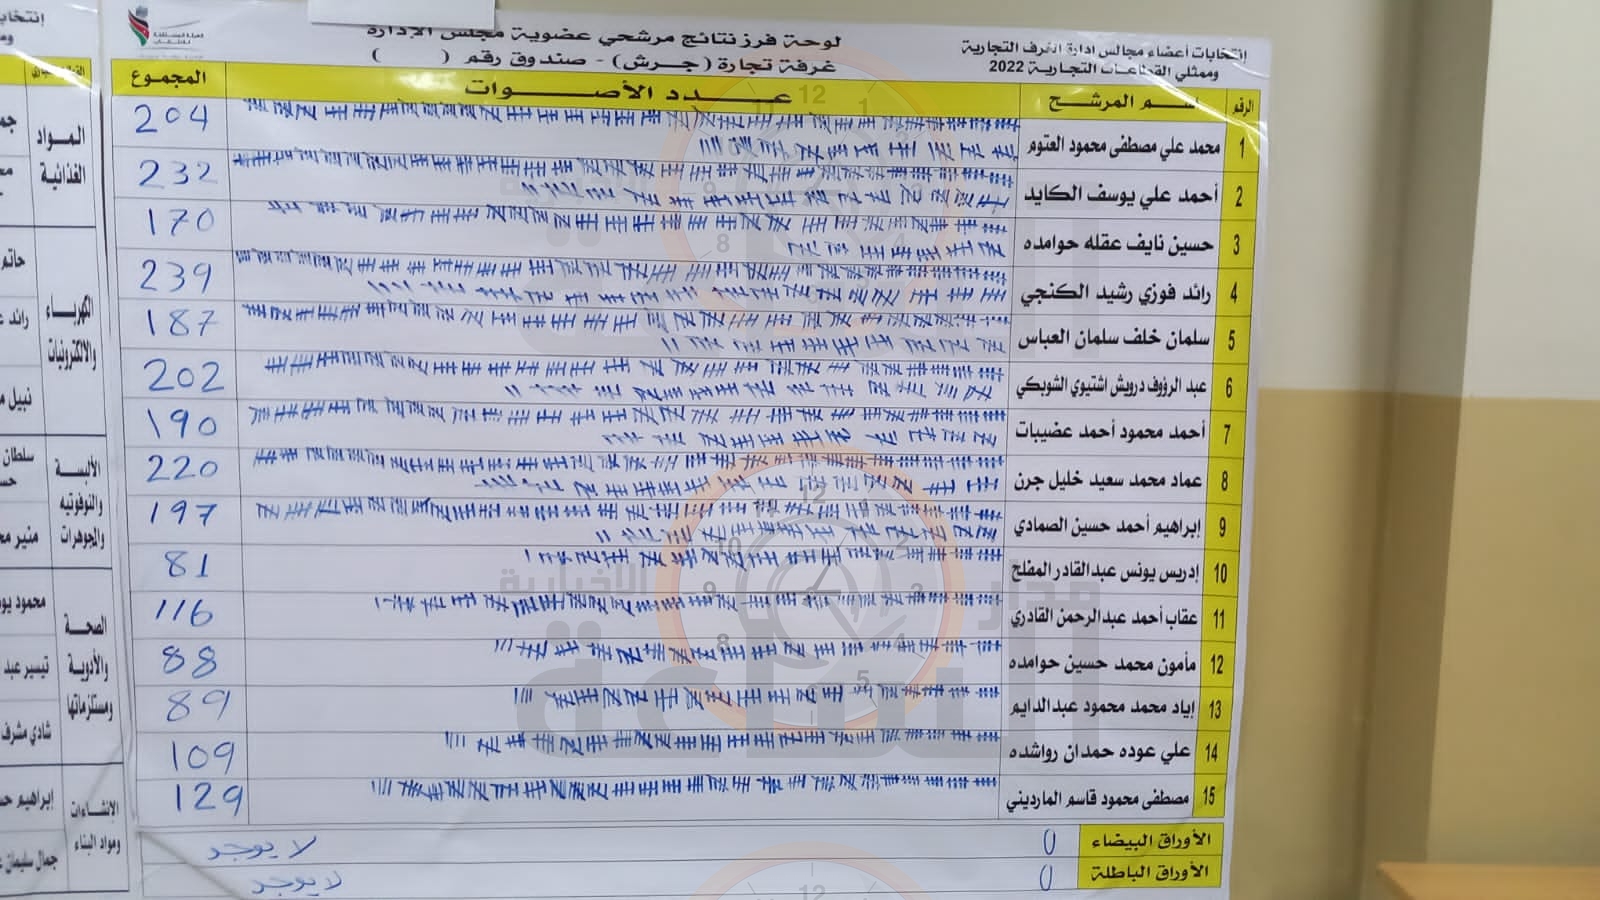 انتخابات أعضاء مجالس إدارة الغرف التجارية
وممثلي القطاعات التجارية 2022
لوحة فرز نتائج مرشحي عضوية مجلس الإدارة
غرفة تجارة (جرش) - صندوق رقم ( )
الرقم اسم المرشح عدد الأصوات المجموع
1 محمد علي مصطفى محمود العتوم 204
2 أحمد علي يوسف الكايد 232
3 حسين نايف عقله حوامده 170
4 رائد فوزي رشيد الكنجي 239
5 سلمان خلف سلمان العباس 187
6 عبد الرؤوف درويش اشتيوي الشوبكي 202
7 أحمد محمود أحمد عضيبات 190
8 عماد محمد سعيد خليل جرن 220
9 إبراهيم أحمد حسين الصمادي 197
10 إدريس يونس عبدالقادر المفلح 81
11 عقاب أحمد عبدالرحمن القادري 116
12 مأمون محمد حسين حوامده 88
13 إياد محمد محمود عبدالدايم 89
14 علي عوده حمدان رواشده 109
15 مصطفى محمود قاسم المارديني 129
الأوراق البيضاء 0 لا يوجد
الأوراق الباطلة 0 لا يوجد
المواد
الغذائية
الكهرباء
والالكترونيات
رائد
نبيل
الألبسة
والنوفوتيه
والمجوهرات
سلطان
منير
الصحة
والأدوية
ومستلزماتها
محمود
تيسير عبد
شادي مشرف
الإنشاءات
ومواد البناء
إبراهيم
جمال سليمان
الإخبارية
الساعة